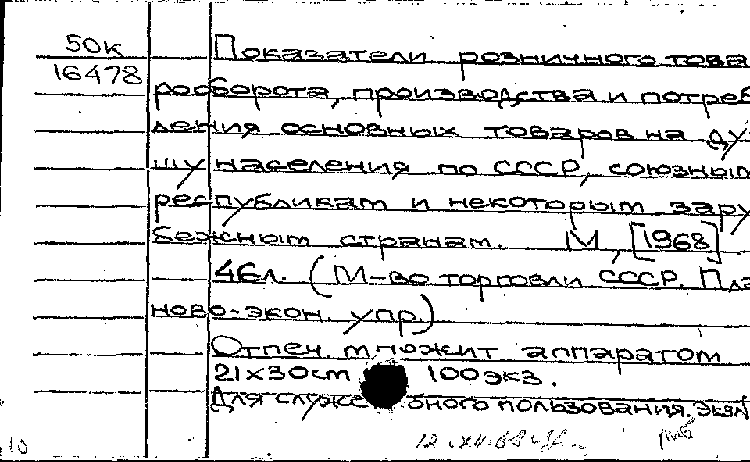 50к
16478
Показатели розничного това
рооборота, производства и потреб
ления основных товаров на ду
шу населения по СССР, союзным
республикам и некоторым зару
бежным странам. М, [1968]
46л. (М-во торговли СССР. Пла
ново-экон. упр.)
Отпеч. множит аппаратом
21х30см 100экз.
Для служебного пользования.
10